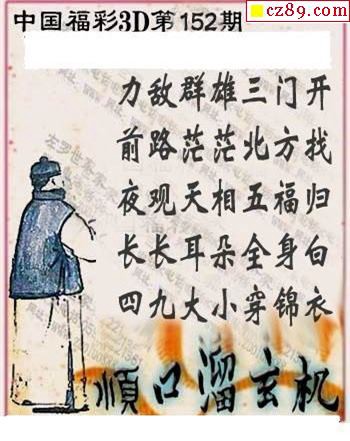 cz89.com
中国福彩3D第152期
力敌群雄三门开
前路茫茫北方找
夜观天相五福归
长长耳朵全身白
四九大小穿锦衣
順口溜玄机